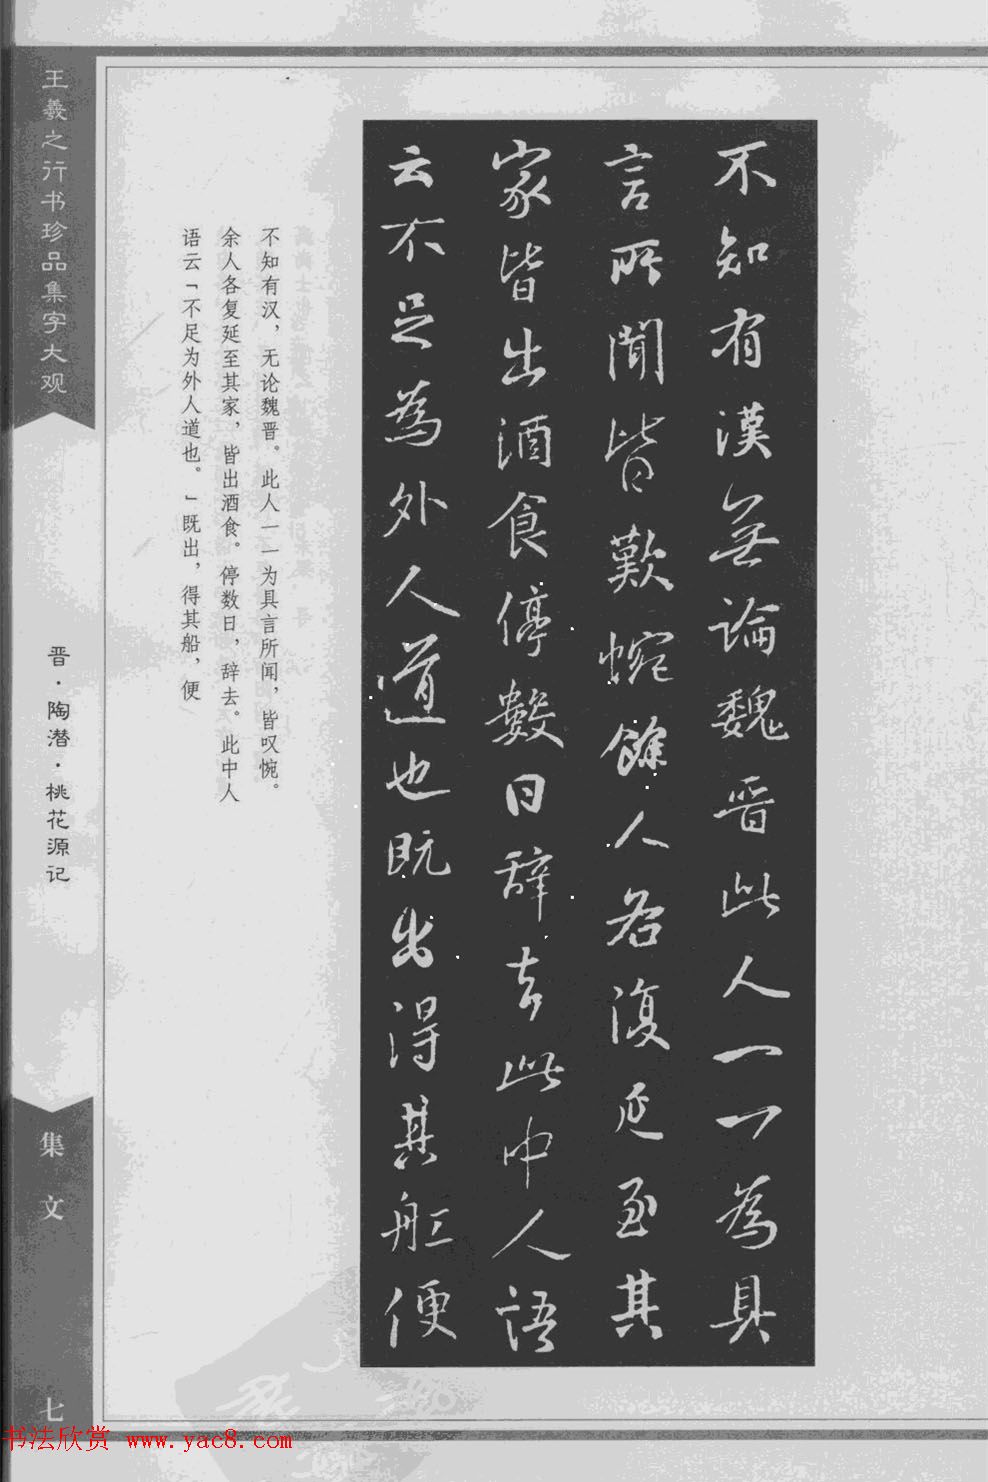 王羲之行书珍品集字大观
不知有漢無論魏晋此人一一為具
言所聞皆歎惋餘人各復延至其
家皆出酒食停數日辭去此中人語
云不足為外人道也既出得其舩便
不知有汉，无论魏晋。此人一一为具言所闻，皆叹惋。
余人各复延至其家，皆出酒食。停数日，辞去。此中人
语云「不足为外人道也。」既出，得其船，便
晋·陶潜·桃花源记
集文
七
书法欣赏 www.yac8.com